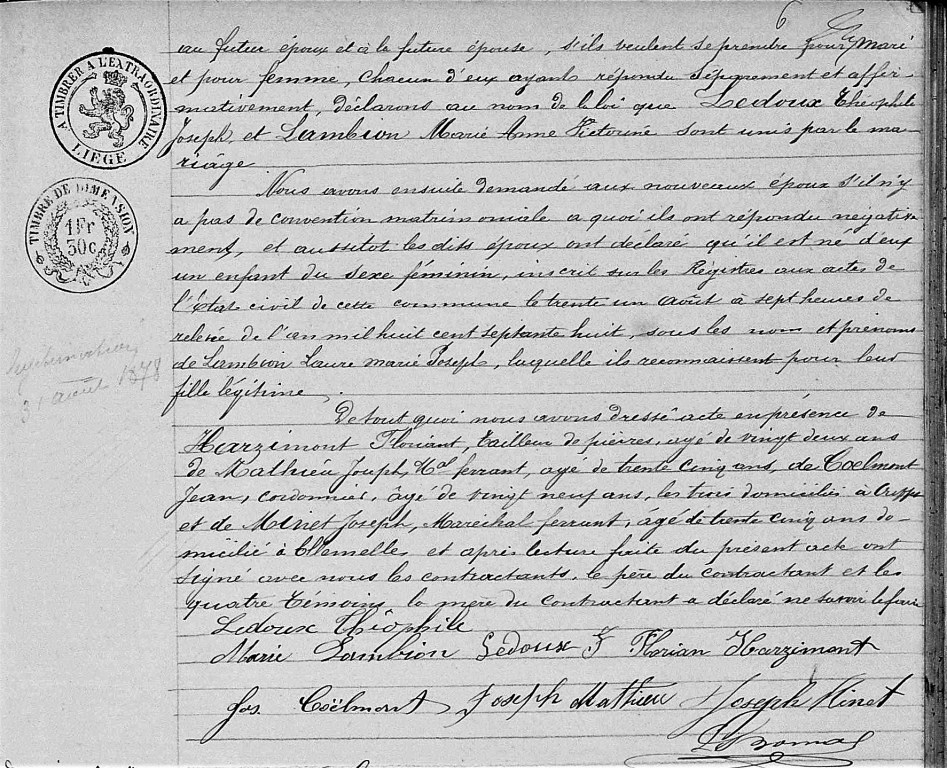 6
au futur époux et à la future épouse, s'ils veulent se prendre pour mari
et pour femme, chacun d'eux ayant répondu séparement et affir-
mativement, déclarons au nom de la loi que Ledoux Théophile
Joseph et Lambion Marie Anne Victorine sont unis par le ma-
riâge
Nous avons ensuite demandé aux nouveaux époux s'il n'y
a pas de convention matrimoniale a quoi ils ont répondu négative-
ment, et aussitôt les dits époux ont déclaré qu'il est né d'eux
un enfant du sexe féminin, inscrit sur les Régistres aux actes de
l'État civil de cette commune le trente un août à sept heures de
relevée de l'an mil huit cent septante huit, sous les nom et prénoms
de Lambion Laure Marie Joseph, laquelle ils reconnaissent pour leur
fille légitime.
De tout quoi nous avons dressé acte en présence de
Harzimont Florient, tailleur de pierres, agé de vingt deux ans
de Mathieu Joseph, Mal ferrant, agé de trente cinq ans, de Coelmont
Jean, cordonnier, âgé de vingt neuf ans, les trois domiciliés à
et de Minet Joseph, Maréchal ferrant, âgé de trente cinq ans do-
micilié à et après lecture faite du présent acte ont
signé avec nous les contractants, le père du contractant et les
quatre témoins la mère du contractant a déclaré ne savoir le faire
Ledoux Théophile
Marie Lambion Ledoux J Florian Harzimont
Jos. Coëlmont Joseph Mathieu Joseph Minet
A TIMBRER A L'EXTRAORDINAIRE
LIEGE
TIMBRE DE DIMENSION
1 Fr
30 c.
31 août 1878